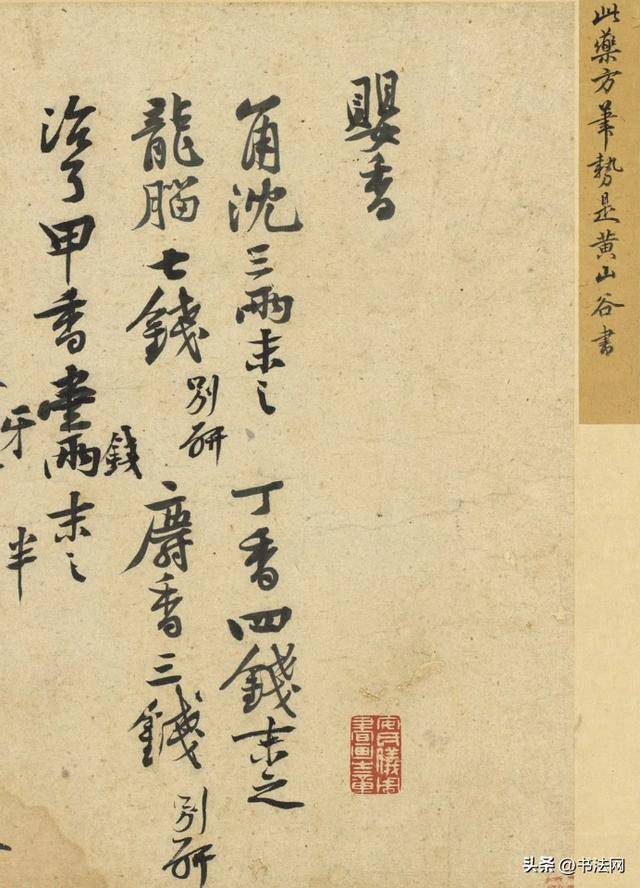 此藥方筆勢是黃山谷書
嬰香
角沈三兩末之 丁香四錢末之
龍腦七錢別研 麝香三錢別研
錢
治了甲香壹兩末之
牙
半
安氏儀周書畫之章
头条 @书法网